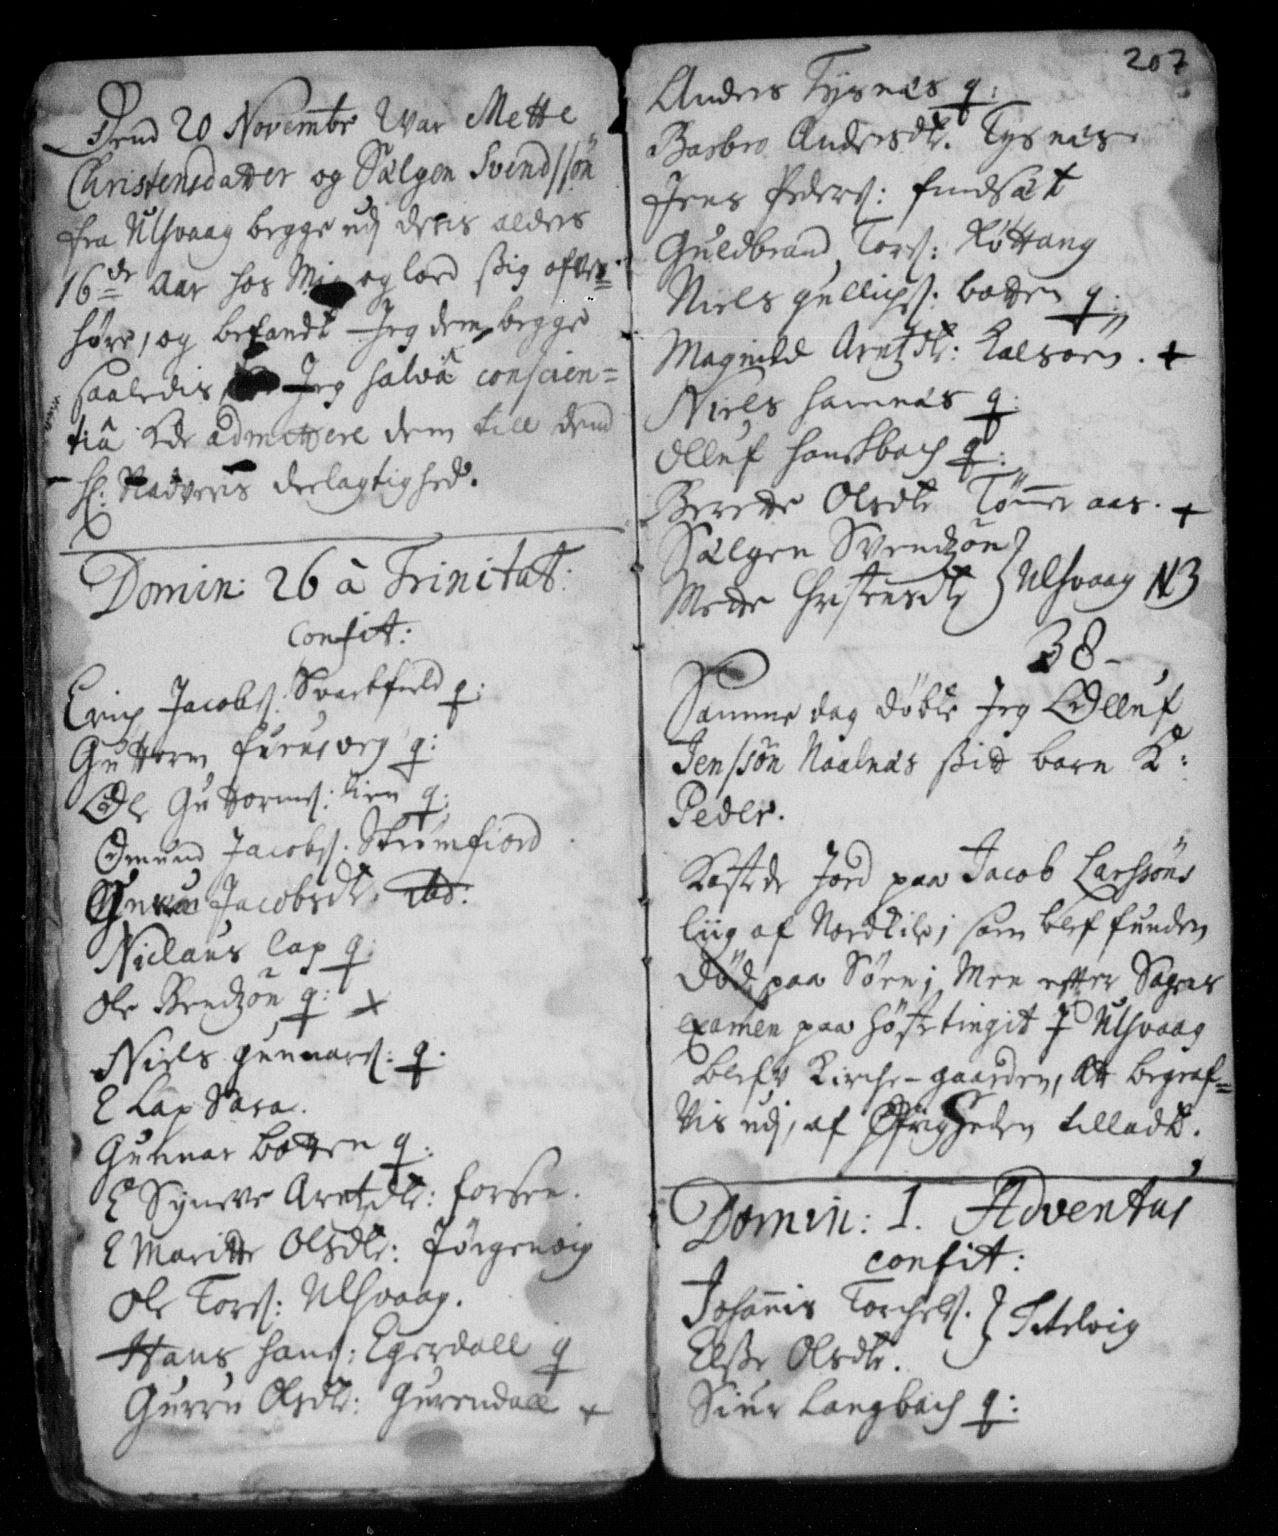 Dend 20 Novembr War Mette
Christensdatter og Sælgen Svendssön
fra Ulsvaag begge udj deris alders
16de Aar hos Mig og loed sig ofver=
höre, og befandt Jeg dem begge
saaledis Jeg salvâ conscien=
tiâ Kde admittere dem till dend
H: Nadveris deelagtighed.
Domin: 26 à Trinitat:
confit:
Erich Jacobs: Svartfield q:
Guttorm furuj q:
Ole Guttorms: Lien q:
Omund Jacobs. Strömfiord
Jacobsdtr. ibd:
Niclaus Lap q:
Ole Bendzön q: x
Niels Gunnars: q.
E Lap Sara.
Gunnar Botten q:
E Synneve Arntzdtr: forsen.
E Maritte Olsdtr: Jörgenvig
Ole Tors: Ulsvaag.
Hans Hans: Egerdall q
Gurru Olsdtr: Gurendall +
207
Anders Tysnæs q:
Barbro Andersdtr. Tysnæs
Jens Peders: findsæt
Guldbrand Tors: Röttang
Niels gullichs: botten q:
Magnild Arntzdtr: Kalsoen. +
Niels Hamnæs q:
Olluf Hanskbach q:
Berette Olsdtr Tömmeraas. +
Sælgen Svendzön }
Mette Christensdtr } Ulsvaag N3
38-
Samme dag döbte Jeg Olluf
Jenssön Naalnæs sit barn K:
Peder.
Kastede Jord paa Jacob Larssöns
liig af Nordkil, som blef funden
död paa Söen; Men efter Sagens
examen paa Höstetingit J Ulsvaag
blefv Kirche-gaarden, At begraf=
vis udj, af Öfrigheden tilladt.
Domin: 1. Adventus
confit:
Johannis Torchels. }
Elsse Olsdtr. } Tilvig
Siur Langbach q: